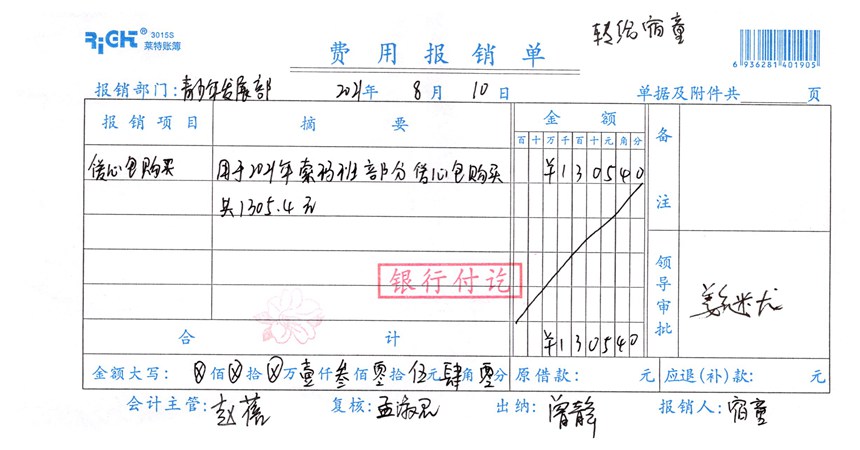 RiGHT 3015S
莱特账簿
转给宿童
费用报销单
6 936281 401905
报销部门:青少年发展部 2021年 8月 10日 单据及附件共 页
报销项目 摘要 金额 备注
百十万千百十元角分
信心包购买 用于2021年索玛班部分信心包购买 ¥130540
共1305.4元
银行付讫
领导审批
合计 ¥130540
金额大写: ⊗佰⊗拾⊗万壹仟叁佰零拾伍元肆角零分 原借款: 元 应退(补)款: 元
会计主管:赵蓓 复核:孟淑思 出纳:曾静 报销人:宿童